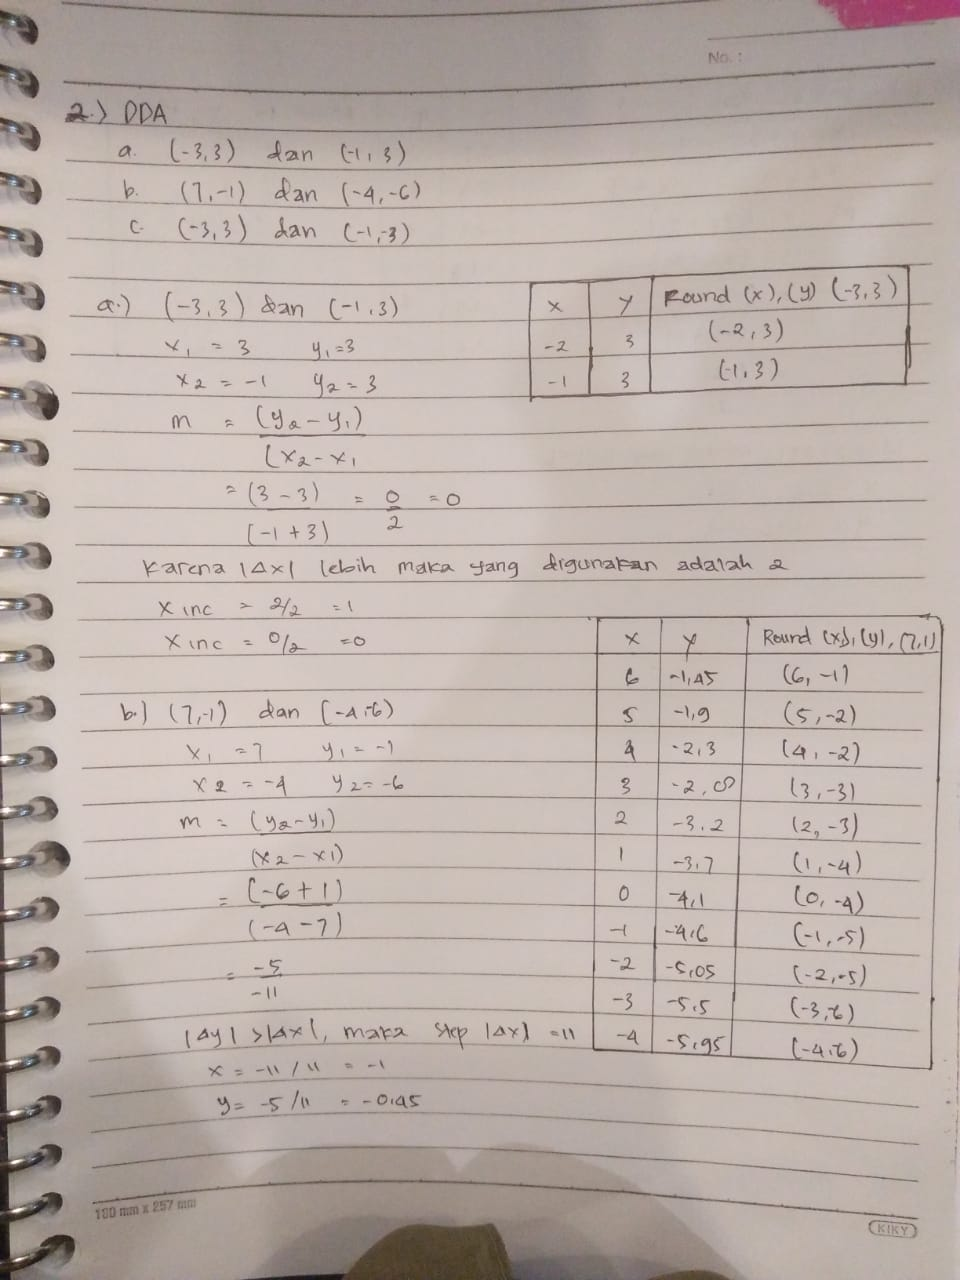 No. :
2.) DDA
a. (-3,3) dan (-1,3)
b. (7,-1) dan (-4,-6)
c. (-3,3) dan (-1,-3)
a.) (-3,3) dan (-1,3)
x₁ = 3 y₁=3
x₂ = -1 y₂=3
m = (y₂-y₁)
(x₂-x₁
= (3-3) = 0 = 0
(-1+3) 2
x y Round (x),(y) (-3,3)
-2 3 (-2,3)
-1 3 (-1,3)
Karena |Δx| lebih maka yang digunakan adalah 2
x inc = 2/2 =1
x inc = 0/2 =0
b.) (7,-1) dan (-4,-6)
x₁ =7 y₁ = -1
x₂ = -4 y₂= -6
m = (y₂-y₁)
(x₂-x₁)
= (-6+1)
(-4-7)
= -5
-11
|Δy| >|Δx|, maka step |Δx| =11
x = -11/11 = -1
y= -5/11 = -0,45
x y Round (x),(y), (7,1)
6 -1,45 (6,-1)
5 -1,9 (5,-2)
4 -2,3 (4,-2)
3 -2,8 (3,-3)
2 -3,2 (2,-3)
1 -3,7 (1,-4)
0 -4,1 (0,-4)
-1 -4,6 (-1,-5)
-2 -5,05 (-2,-5)
-3 -5,5 (-3,-6)
-4 -5,95 (-4,-6)
180 mm x 257 mm
KIKY